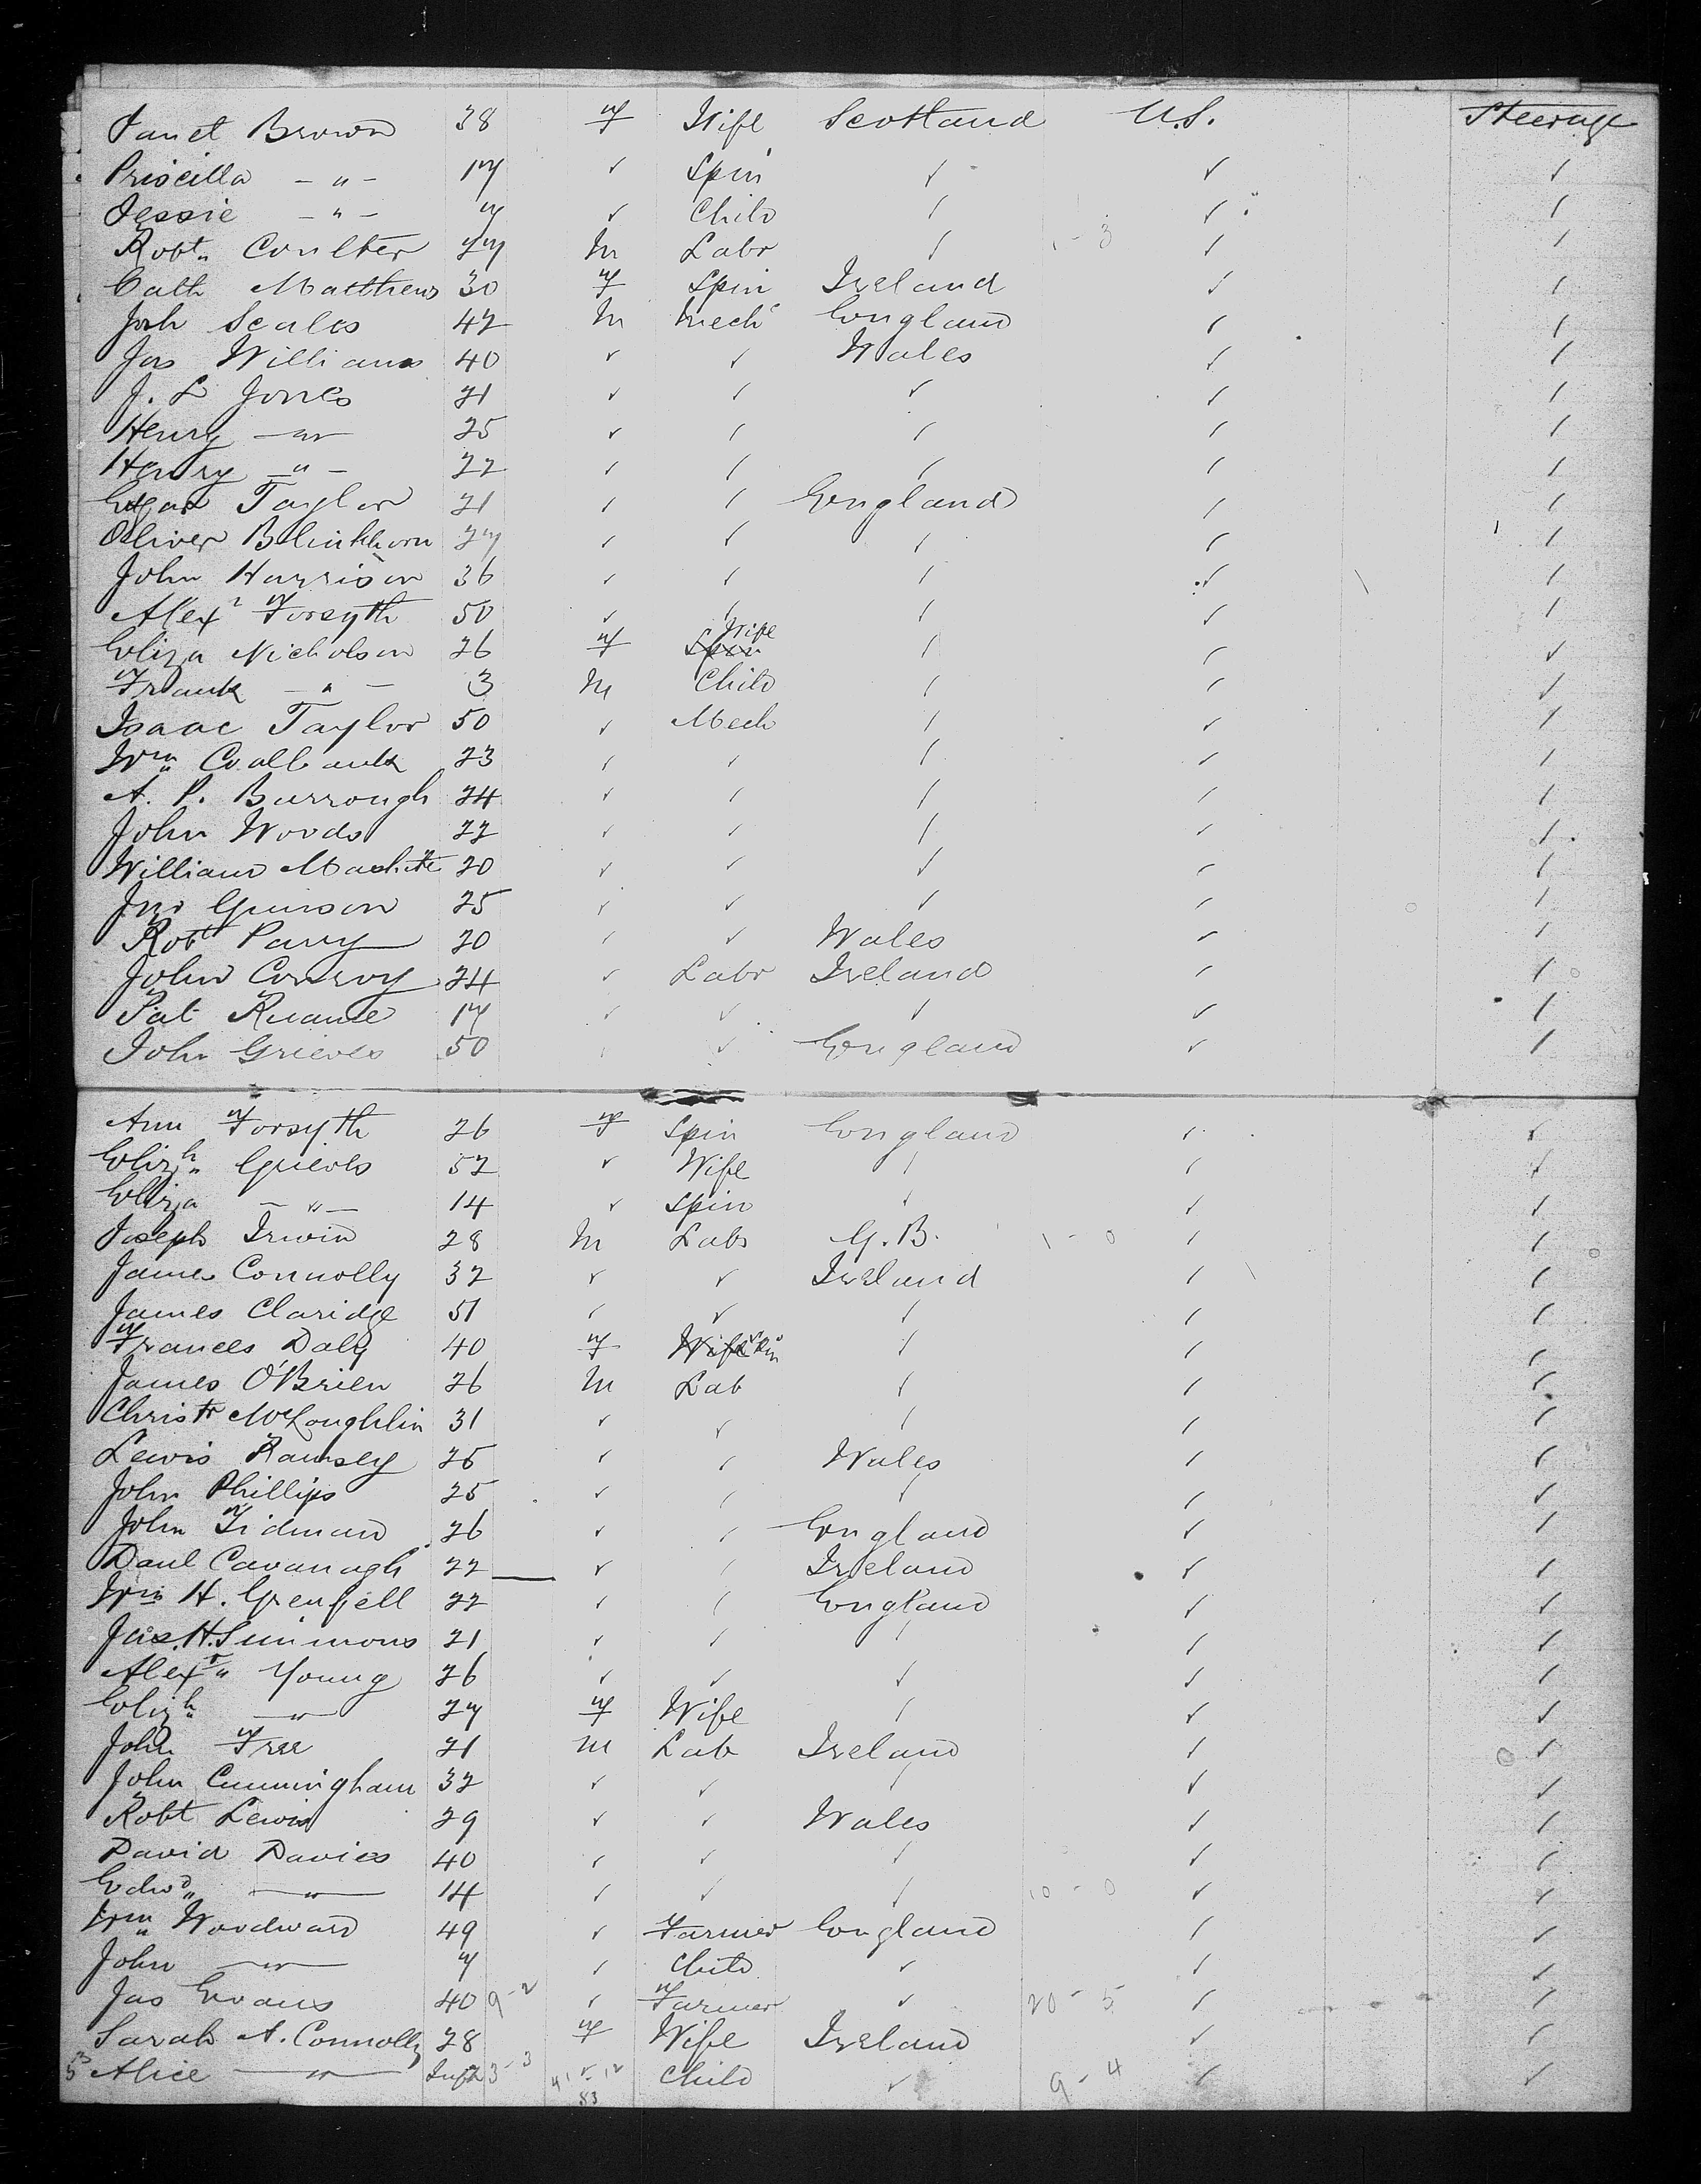 Janet Brown 38 F Wife Scotland U.S. Steerage
Priscilla - " - 17 ✓ Spin ✓ ✓ ✓
Jessie - " - 7 ✓ Child ✓ ✓ ✓
Robt. Coulter 27 M Labr ✓ 1 - 3 ✓ ✓
Cath Matthews 30 F Spin Ireland ✓ ✓
Joh Scales 42 M Mech England ✓ ✓
Jas Williams 40 ✓ ✓ Wales ✓ ✓
J. L Jones 21 ✓ ✓ ✓ ✓ ✓
Henry - " - 25 ✓ ✓ ✓ ✓ ✓
Henry - " - 22 ✓ ✓ ✓ ✓ ✓
Taylor 21 ✓ ✓ England ✓ ✓
Oliver Blinkhorn 27 ✓ ✓ ✓ ✓ ✓
John Harrison 36 ✓ ✓ ✓ ✓ ✓
Alexr Forsyth 50 ✓ ✓ ✓ ✓ ✓
Eliza Nicholson 26 F Spin Wife ✓ ✓ ✓
Frank - " - 3 M Child ✓ ✓ ✓
Isaac Taylor 50 ✓ Mech ✓ ✓ ✓
Wm Coalbank 23 ✓ ✓ ✓ ✓ ✓
A. P. Burrough 24 ✓ ✓ ✓ ✓ ✓
John Woods 22 ✓ ✓ ✓ ✓ ✓
William 20 ✓ ✓ ✓ ✓ ✓
Jno Gunson 25 ✓ ✓ ✓ ✓ ✓
Robt Parry 20 ✓ ✓ Wales ✓ ✓
John Conroy 24 ✓ Labr Ireland ✓ ✓
Pat Ruane 17 ✓ ✓ ✓ ✓ ✓
John Grieves 50 ✓ ✓ England ✓ ✓
Ann Forsyth 26 F Spin England ✓ ✓
Elizh Grieves 52 ✓ Wife ✓ ✓ ✓
Eliza - " - 14 ✓ Spin ✓ ✓ ✓
Joseph Irwin 28 M Labr G.B. 1 - 0 ✓ ✓
James Connolly 32 ✓ ✓ Ireland ✓ ✓
James Claridge 51 ✓ ✓ ✓ ✓ ✓
Frances Daly 40 F Wife Spin ✓ ✓ ✓
James O'Brien 26 M Lab ✓ ✓ ✓
Christr McLoughlin 31 ✓ ✓ ✓ ✓ ✓
Lewis Ramsey 25 ✓ ✓ Wales ✓ ✓
John Phillips 25 ✓ ✓ ✓ ✓ ✓
John Tidman 26 ✓ ✓ England ✓ ✓
Danl Cavanagh 22 ✓ ✓ Ireland ✓ ✓
Wm H. Grenfell 22 ✓ ✓ England ✓ ✓
Jas. H. Simmons 21 ✓ ✓ ✓ ✓ ✓
Alexr Young 26 ✓ ✓ ✓ ✓ ✓
Elizh - " - 27 F Wife ✓ ✓ ✓
John Free 21 M Lab Ireland ✓ ✓
John Cunningham 32 ✓ ✓ ✓ ✓ ✓
Robt Lewis 29 ✓ ✓ Wales ✓ ✓
David Davies 40 ✓ ✓ ✓ ✓ ✓
Edwd - " - 14 ✓ ✓ ✓ 10 - 0 ✓ ✓
Wm Woodward 49 ✓ Farmer England ✓ ✓
John - " - 7 ✓ Child ✓ ✓ ✓
Jas Evans 40 9-2 ✓ Farmer ✓ 20 - 5 ✓ ✓
Sarah A. Connolly 28 F Wife Ireland ✓ ✓
53 Alice - " - Inft 3-3 Child ✓ 9 - 4 ✓ ✓
83